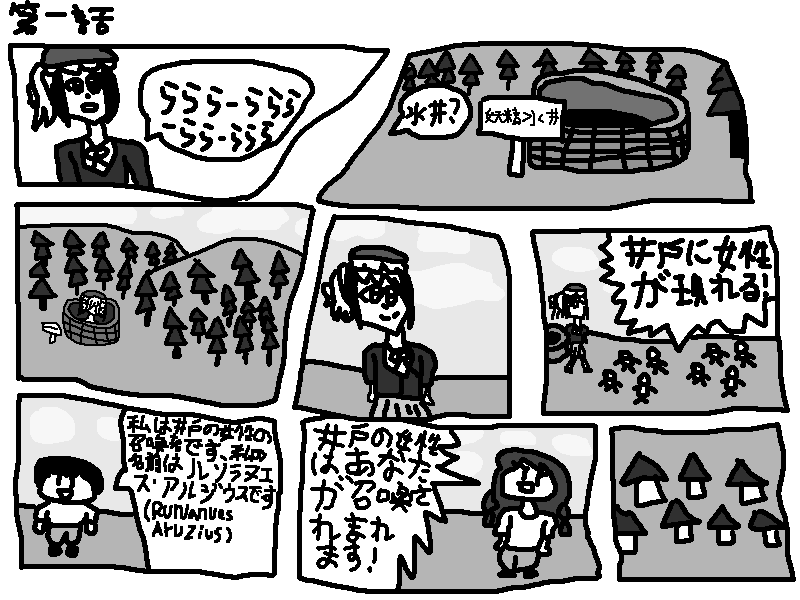 第一話
ららら-ららら
ららら-ららら
水井?
妖精水井
井戸に女性
が現れる!
私は井戸の女性の
召喚者です、私の
名前は ルソラヌエ
ス・アルジウスです
(RunVanues
Aruzius)
井戸の女性
はあなた
が召喚さ
れまれ
ます!